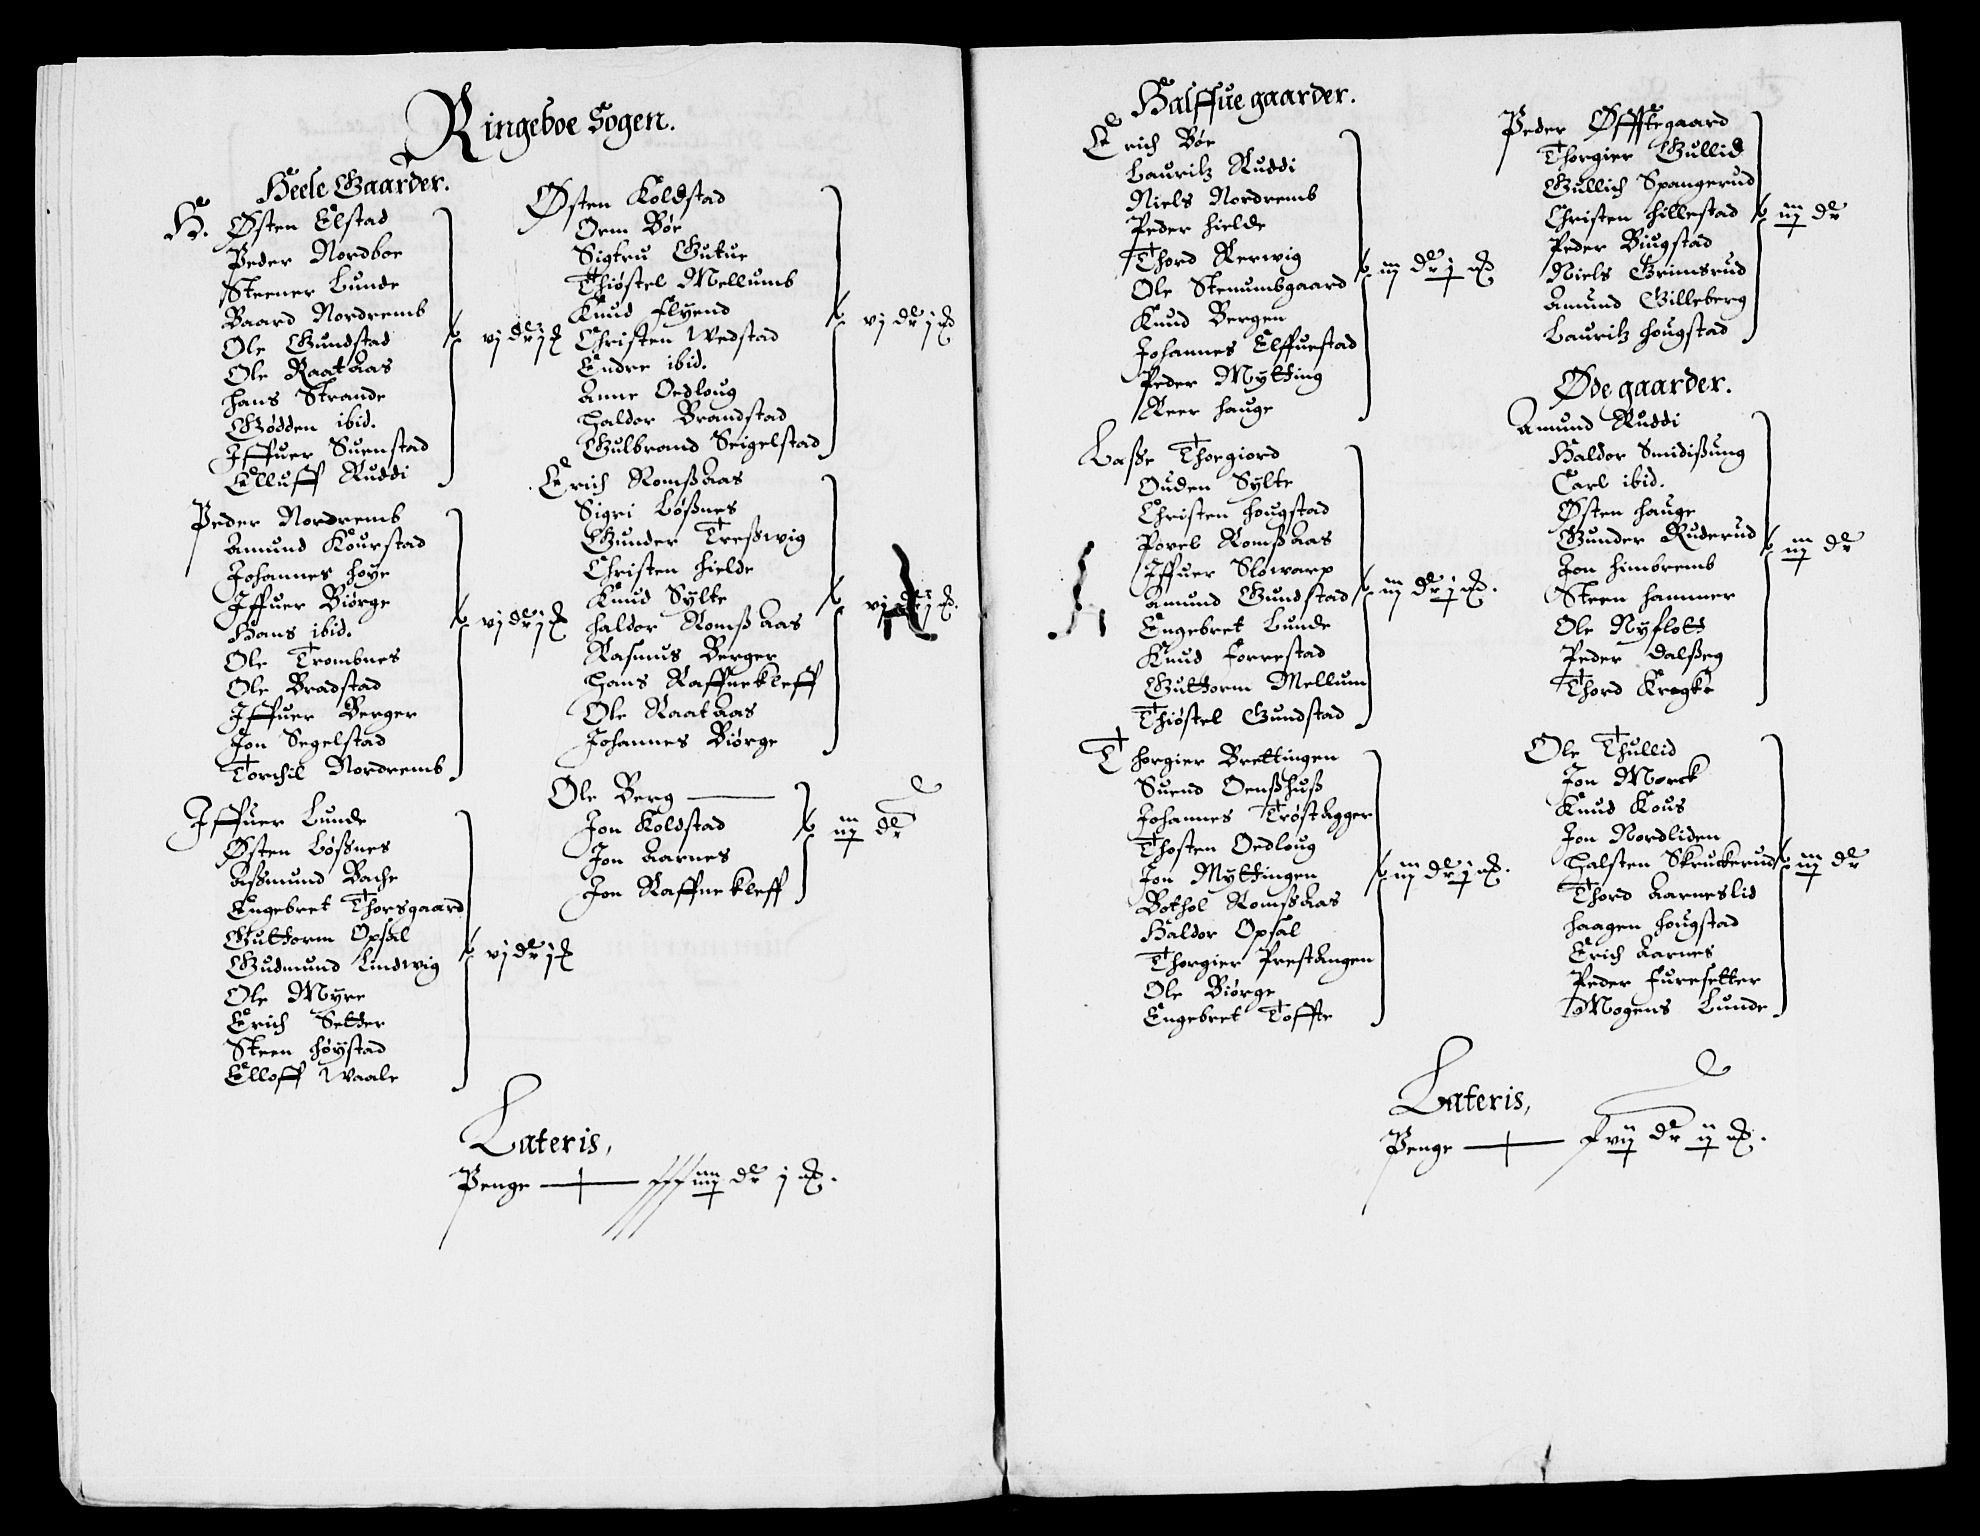 Ringeboe Sogen.
Heele Gaarder.
H. Østen Elstad
Peder Nordboe
Steener Lunde
Baard Nordremb
Ole Gundstad
Ole Raataas
Hans Strande
Gødden ibid.
Iffuer Suenstad
Elluff Ruddi
vj dr j
Peder Nordremb
Amund Kourstad
Johannes Høye
Iffuer Biørge
Hans ibid.
Ole Trombnes
Ole Bradstad
Iffuer Berger
Jon Segelstad
Torchil Nordremb
vj dr j
Iffuer Lunde
Østen Løßnes
Aßmund Bache
Engebret Thorsgaard
Guttorm Opsal
Gudmund Lindwig
Ole Myre
Erich Setter
Steen Høystad
Elloff Waale
vj dr j
Østen Koldstad
Orm Bøe
Sigtru Gutue
Thiøstel Mellumb
Knud Flyend
Christen Wedstad
Endre ibid.
Anne Oedloug
Haldor Brandstad
Gulbrand Seigelstad
vj dr j
Erich Romßaas
Sigri Løßnes
Gunder Treßwig
Christen Hielde
Knud Sylte
Haldor Romßaas
Rasmus Berger
Hans Raffnekleff
Ole Raataas
Johannes Biørge
vj dr j
Ole Berg
Jon Koldstad
Jon Aarnes
Jon Raffnekleff
iiij dr
Lateris,
Penge
dr j
Halffue gaarder.
Erich Bøe
Lauritz Ruddi
Niels Nordremb
Peder Hielde
Thord Kerwig
Ole Stenumbgaard
Knud Bergen
Johannes Elffuestad
Peder Mytting
Reer Hauge
iij dr j
Laße Thorgiord
Ouden Sylte
Christen Hougstad
Povel Romßaas
Iffuer Slowarp
Amund Gundstad
Engebret Lunde
Knud Forrestad
Guttorm Mellum
Thiøstel Gundstad
iij dr j
Thorgier Brettingen
Suend Oenßhuß
Johannes Trøstagger
Thosten Oedloug
Jon Myttingen
Bothol Romßaas
Haldor Opsal
Thorgier Prestangen
Ole Biørge
Engebret Toffte
iij dr j
Peder Øfftegaard
Thorgier Gullid
Gullich Spangerud
Christen Hillestad
Peder Biugstad
Niels Grimsrud
Amund Gilleberg
Lauritz Hougstad
iij dr
Øde gaarder.
Amund Ruddi
Haldor Smidißung
Carl ibid.
Østen Hauge
Gunder Ruderud
Jon Himbremb
Steen Hammer
Ole Nyflott
Peder Dalßeg
Thord Kregke
iij dr
Ole Thullid
Jon Morck
Knud Kous
Jon Nordliden
Halsten Skruckerud
Thord Aarneslid
Haagen Hougstad
Erich Aarnes
Peder Furesetter
Mogens Lunde
iij dr
Lateris,
Penge
dr ij